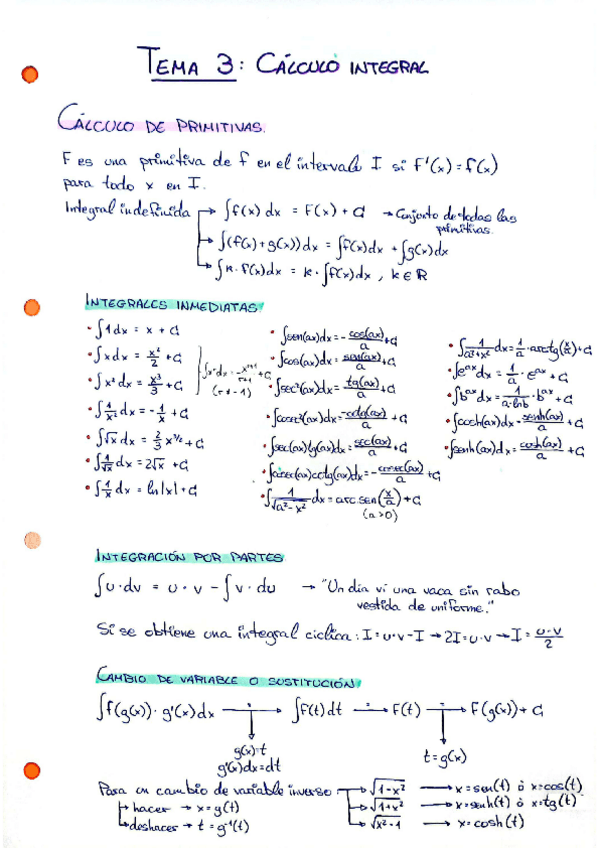 TEMA 3: CÁLCULO INTEGRAL
CÁLCULO DE PRIMITIVAS.
F es una primitiva de f en el intervalo I si F'(x) = f(x)
para todo x en I.
Integral indefinida → ∫f(x) dx = F(x) + C → Conjunto de todas las primitivas.
→ ∫(f(x)+g(x))dx = ∫f(x)dx + ∫g(x)dx
→ ∫k·f(x)dx = k·∫f(x)dx, k∈ℝ
INTEGRALES INMEDIATAS
• ∫1dx = x + C
• ∫x dx = x²/2 + C
• ∫x² dx = x³/3 + C
∫xʳdx = xʳ⁺¹/r+1 + C
(r≠-1)
• ∫1/x² dx = -1/x + C
• ∫√x dx = 2/3 x^3/2 + C
• ∫1/√x dx = 2√x + C
• ∫1/x dx = ln|x| + C
• ∫sen(ax)dx = - cos(ax)/a + C
• ∫cos(ax)dx = sen(ax)/a + C
• ∫sec²(ax)dx = tg(ax)/a + C
• ∫cosec²(ax)dx = -cotg(ax)/a + C
• ∫sec(ax)tg(ax)dx = sec(ax)/a + C
• ∫cosec(ax)cotg(ax)dx = - cosec(ax)/a + C
• ∫1/√a²-x² dx = arc.sen(x/a) + C
(a>0)
• ∫1/a²+x² dx = 1/a · arctg(x/a) + C
• ∫eᵃˣ dx = 1/a · eᵃˣ + C
• ∫bᵃˣ dx = 1/a·lnb · bᵃˣ + C
• ∫cosh(ax)dx = senh(ax)/a + C
• ∫senh(ax)dx = cosh(ax)/a + C
INTEGRACIÓN POR PARTES
∫u·dv = u·v - ∫v·du → "Un día vi una vaca sin rabo
vestida de uniforme."
Si se obtiene una integral cíclica: I = u·v - I → 2I = u·v → I = u·v/2
CAMBIO DE VARIABLE O SUSTITUCIÓN
∫f(g(x))·g'(x)dx → ∫f(t)dt → F(t) → F(g(x)) + C
g(x)=t
g'(x)dx=dt
t=g(x)
Para un cambio de variable inverso → √1-x² → x = sen(t) ò x=cos(t)
→ hacer → x=g(t) → √1+x² → x = senh(t) ò x=tg(t)
→ deshacer → t = g⁻¹(t) → √x²-1 → x = cosh(t)